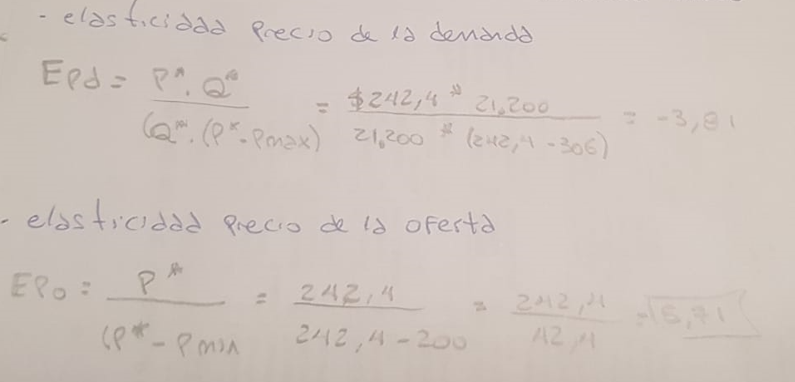 - elasticidad precio de la demanda
EPd = P*. Q* / (Q*. (P*-Pmax) = $242,4 * 21,200 / 21,200 * (242,4 - 306) = -3,81
- elasticidad precio de la oferta
EPo = P* / (P* - Pmin = 242,4 / 242,4 - 200 = 242,4 / 42,4 = 5,71